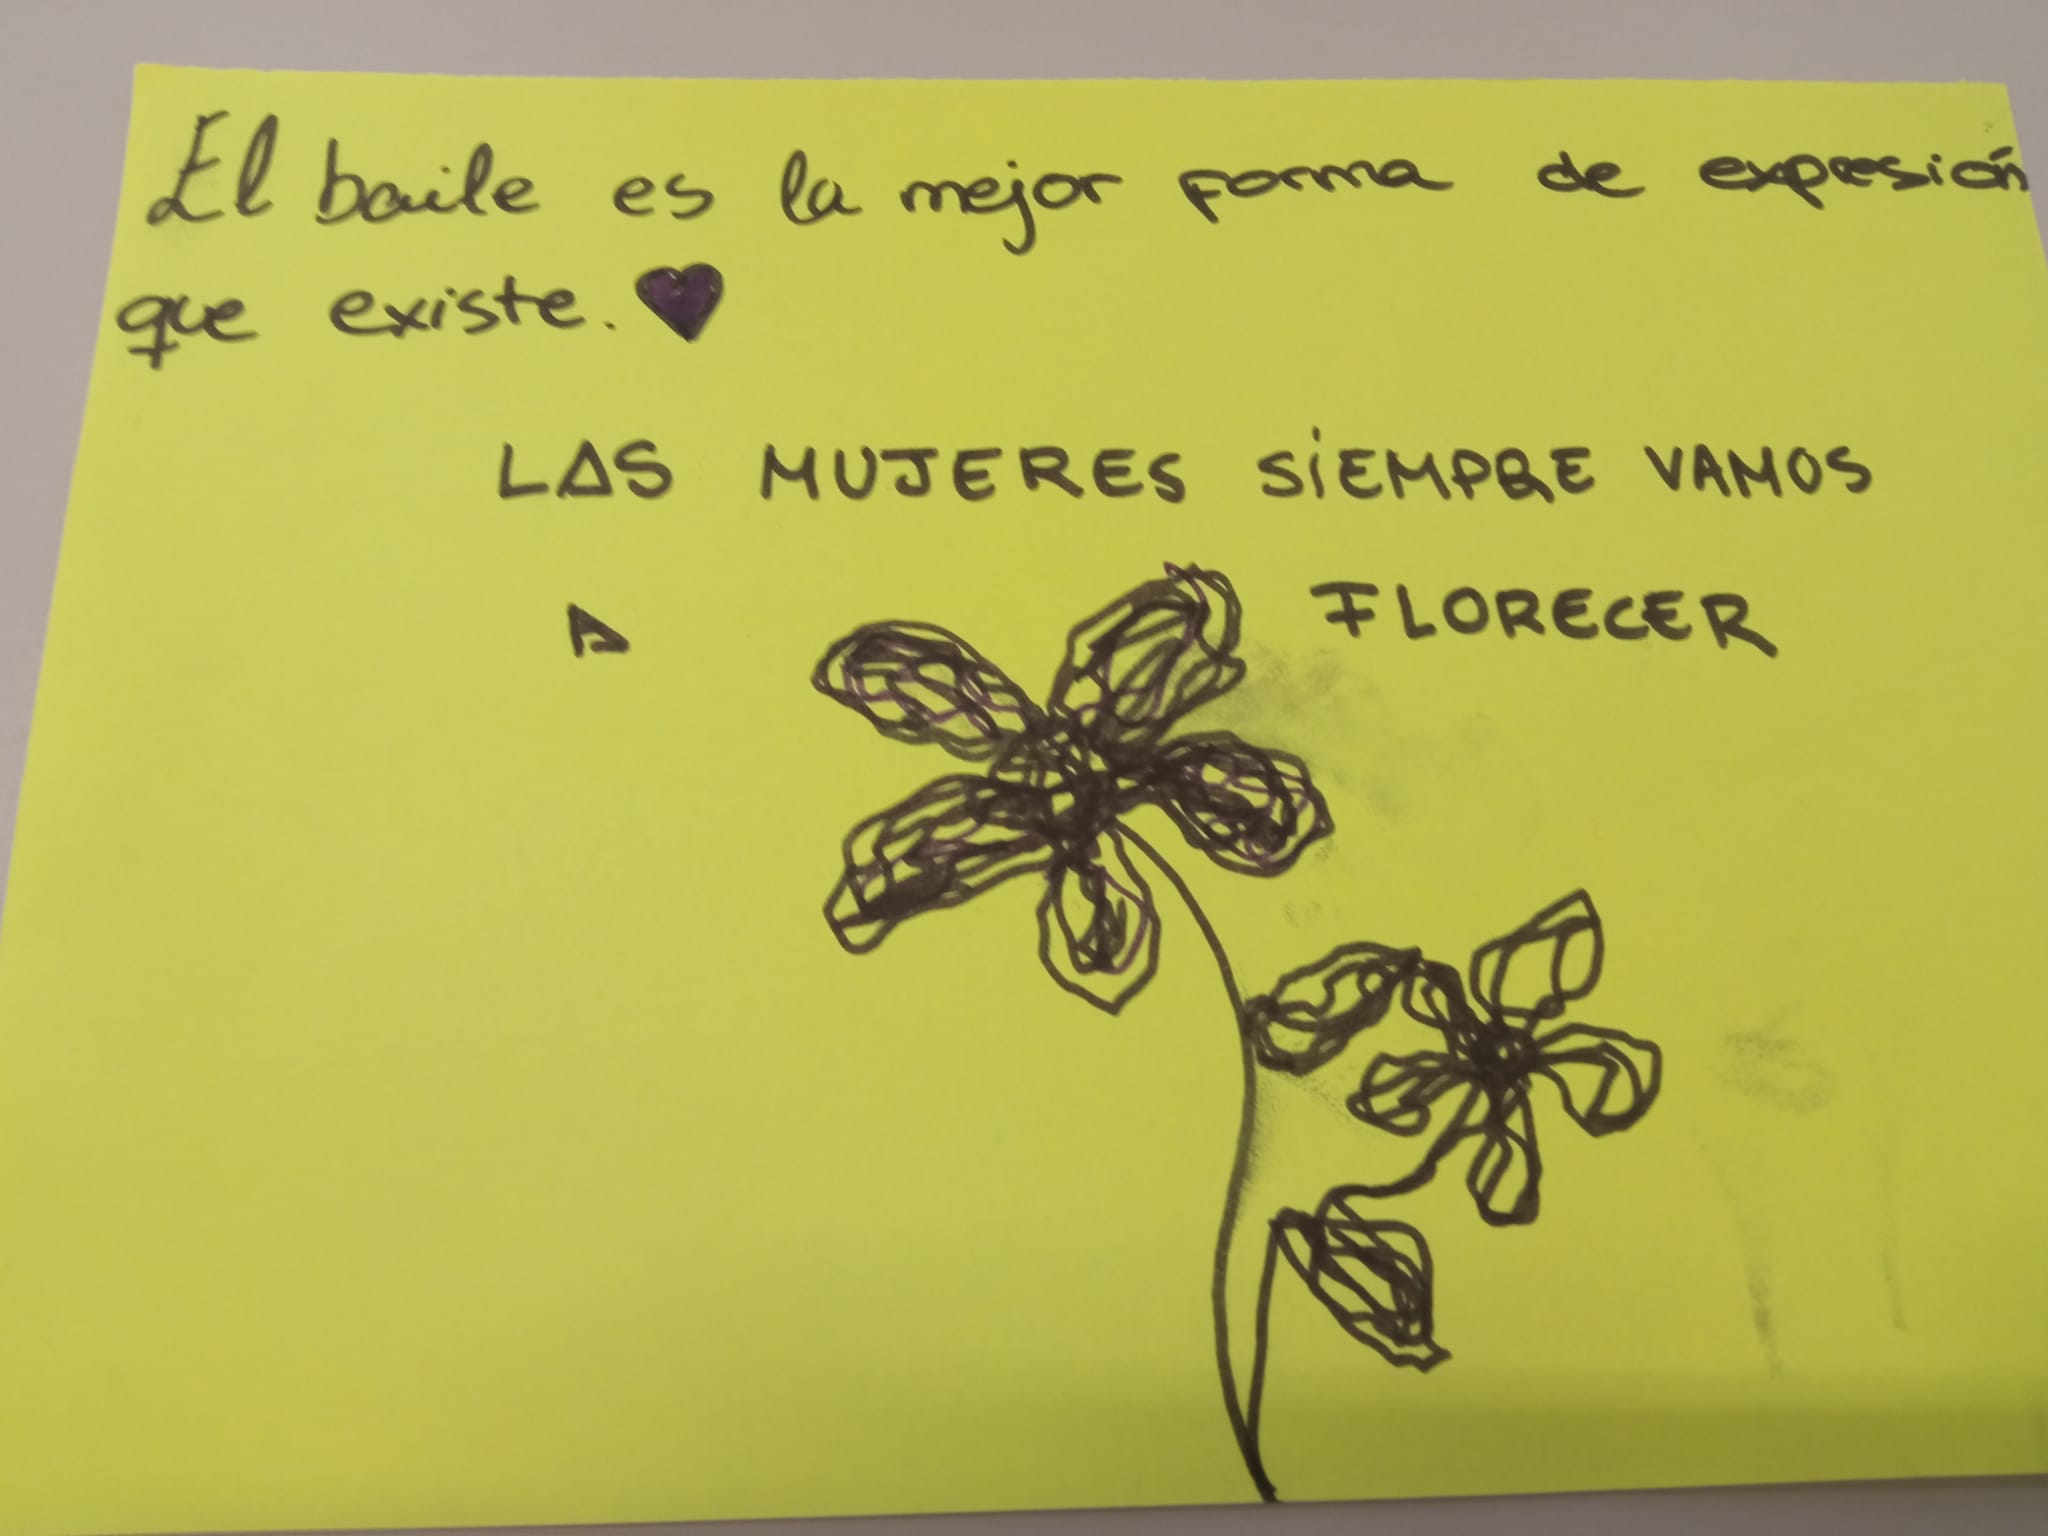 El baile es la mejor forma de expresión
que existe.
LAS MUJERES SIEMPRE VAMOS
A FLORECER